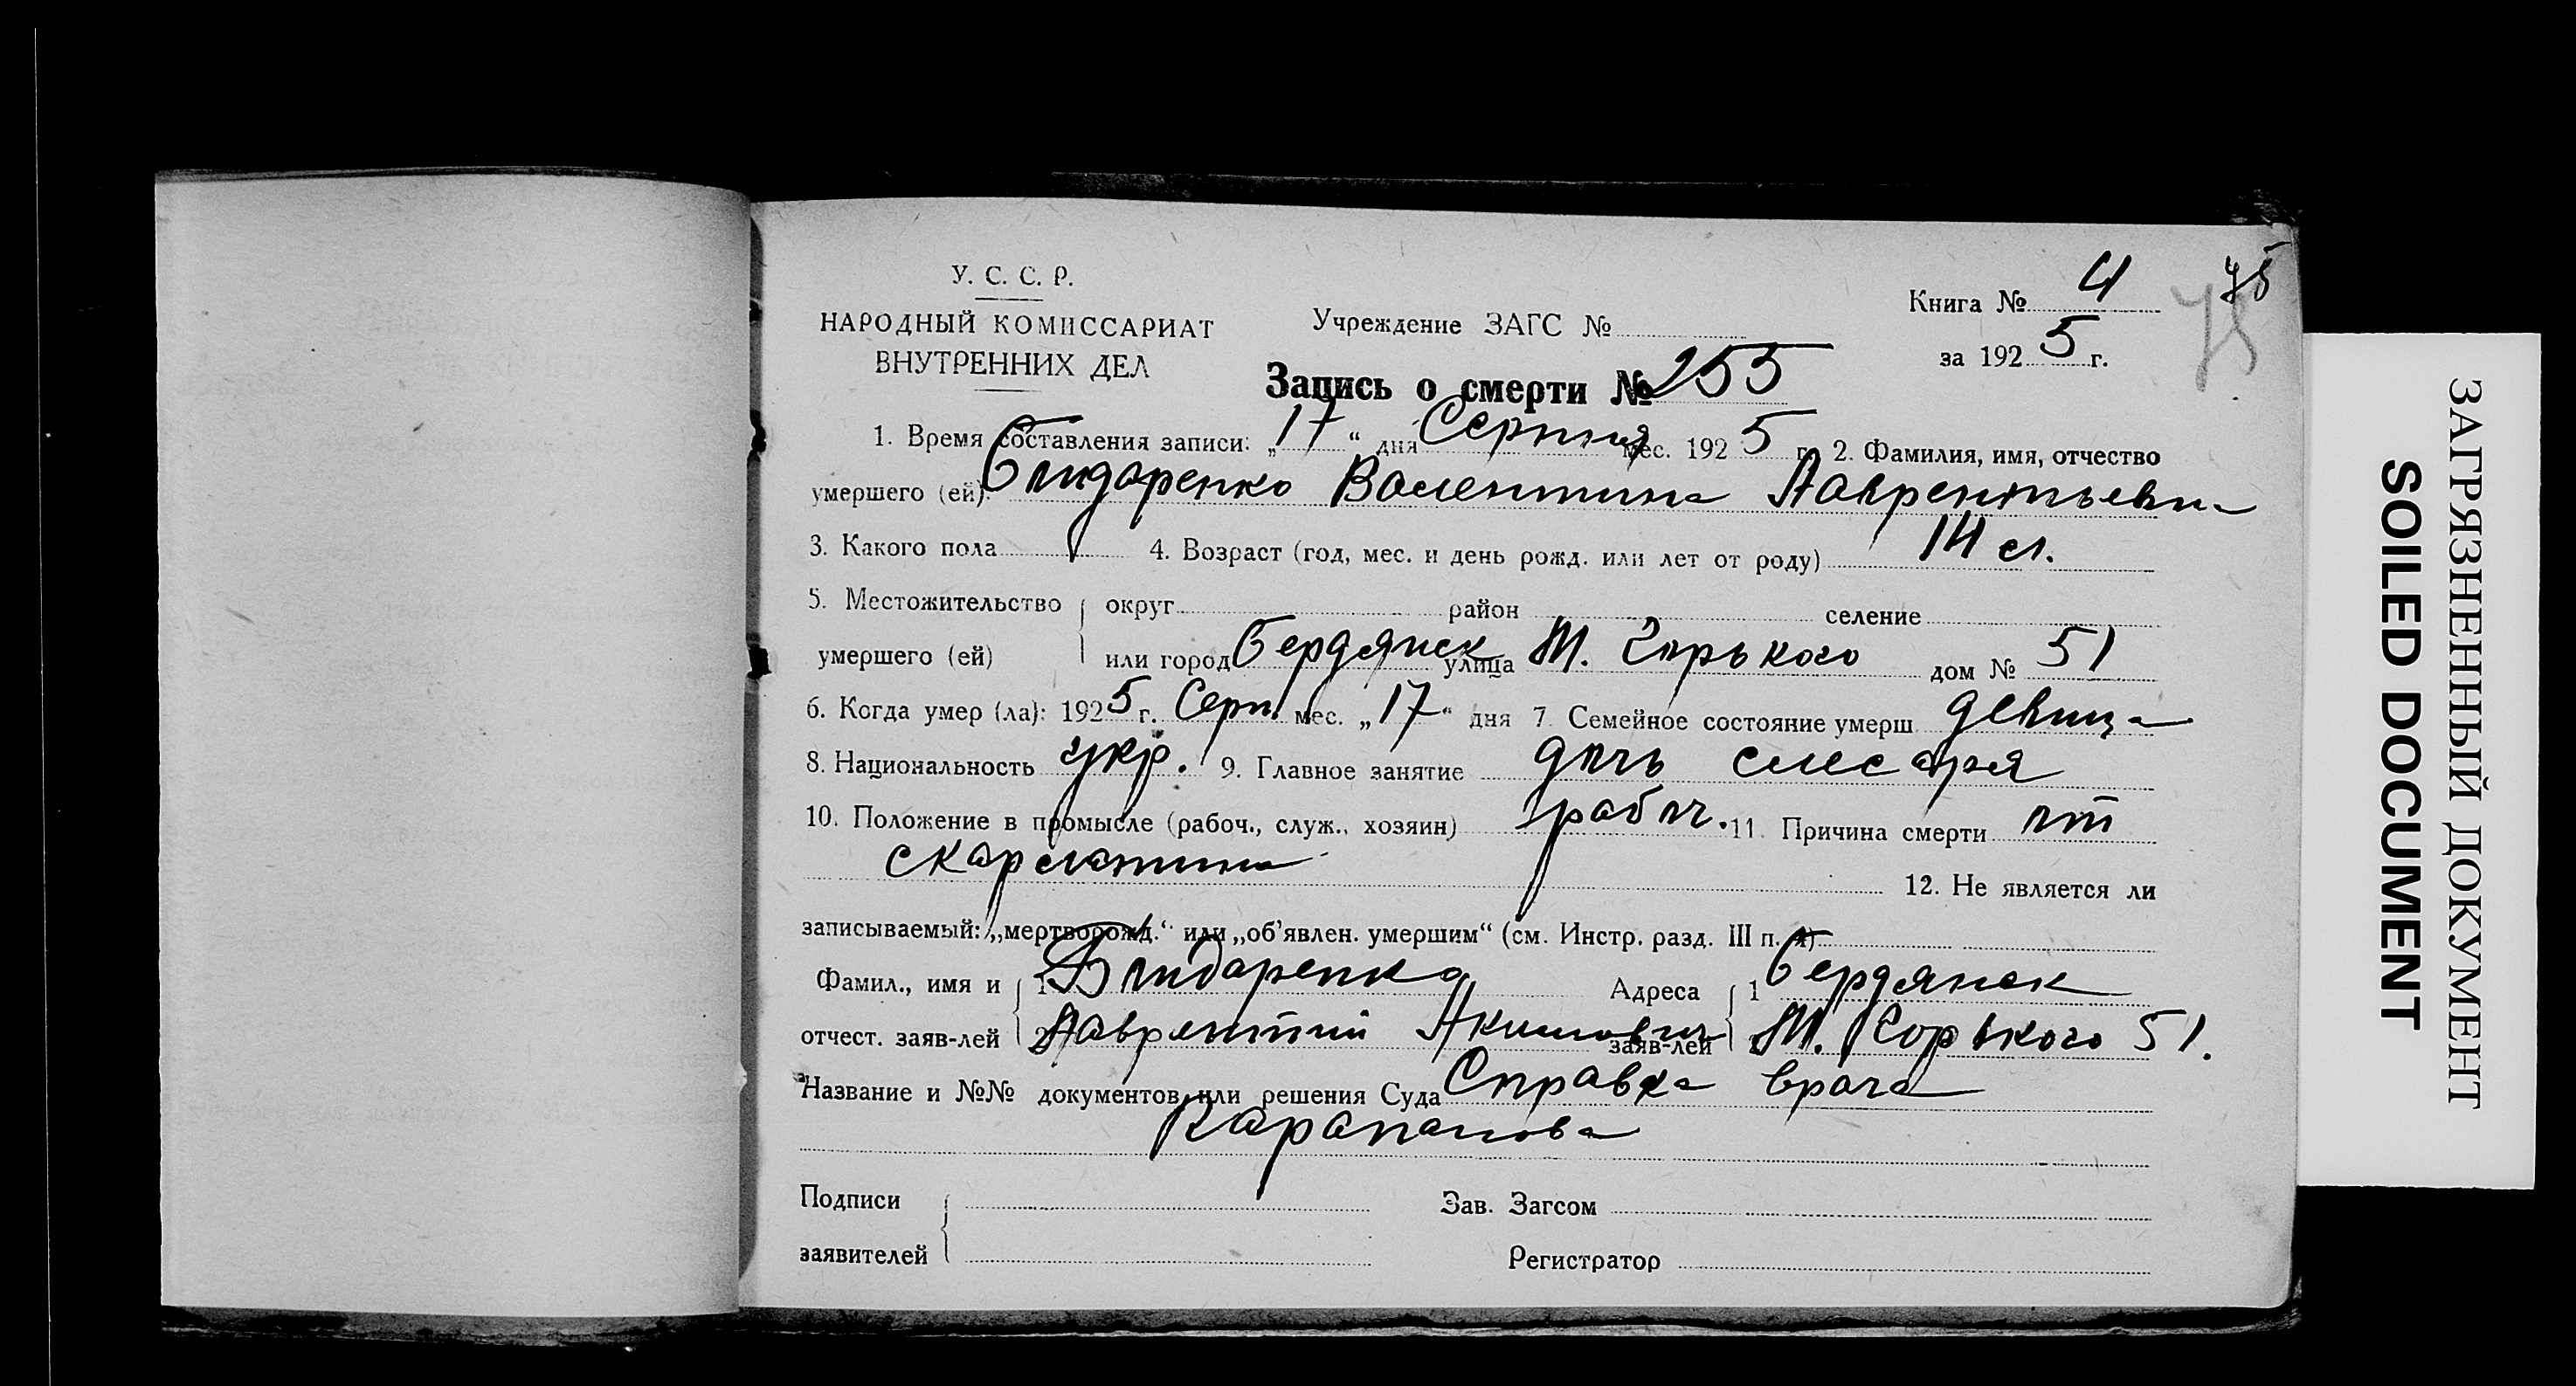 У. С. С. Р.
НАРОДНЫЙ КОМИССАРИАТ
ВНУТРЕННИХ ДЕЛ
Учреждение ЗАГС №
Книга № 4
75
75
за 1925 г.
Запись о смерти № 255
1. Время составления записи: „17“ дня Серпня мес. 1925 г. 2. Фамилия, имя, отчество
умершего (ей): Бондаренко Валентина Лаврентьевна
3. Какого пола 4. Возраст (год, мес. и день рожд. или лет от роду)
5. Местожительство округ район селение
умершего (ей) или город Бердянск улица М. Горького дом № 51
6. Когда умер (ла): 1925 г. Серп. мес. „17“ дня 7 Семейное состояние умерш. девица
8. Национальность укр. 9. Главное занятие дочь слесаря
10. Положение в промысле (рабоч., служ., хозяин) рабоч. 11 Причина смерти от
скарлатины
12. Не является ли
записываемый: „мертворожд.“ или „об’явлен. умершим“ (см. Инстр. разд. III п. я)
Фамил., имя и 1 Бондаренко Адреса 1 Бердянск
отчест. заяв-лей 2 Лаврентий Акимович заяв-лей М. Горького 51.
Название и №№ документов или решения Суда Справка врача
Подписи Зав. Загсом
заявителей Регистратор
ЗАГРЯЗНЕННЫЙ ДОКУМЕНТ
SOILED DOCUMENT